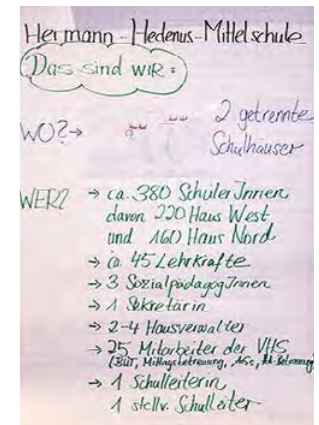 Hermann-Hedenus-Mittelschule
Das sind WIR:
WO? → 2 getrennte
Schulhäuser
WER? → ca. 380 SchülerInnen
davon 220 Haus West
und 160 Haus Nord
→ ca. 45 Lehrkräfte
→ 3 SozialpädagogInnen
→ 1 Sekretärin
→ 2-4 Hausverwalter
→ 25 Mitarbeiter der VHS
(Büt, Mittagsbetreuung, AGs, Betreuung)
→ 1 Schulleiterin
1 stellv. Schulleiter